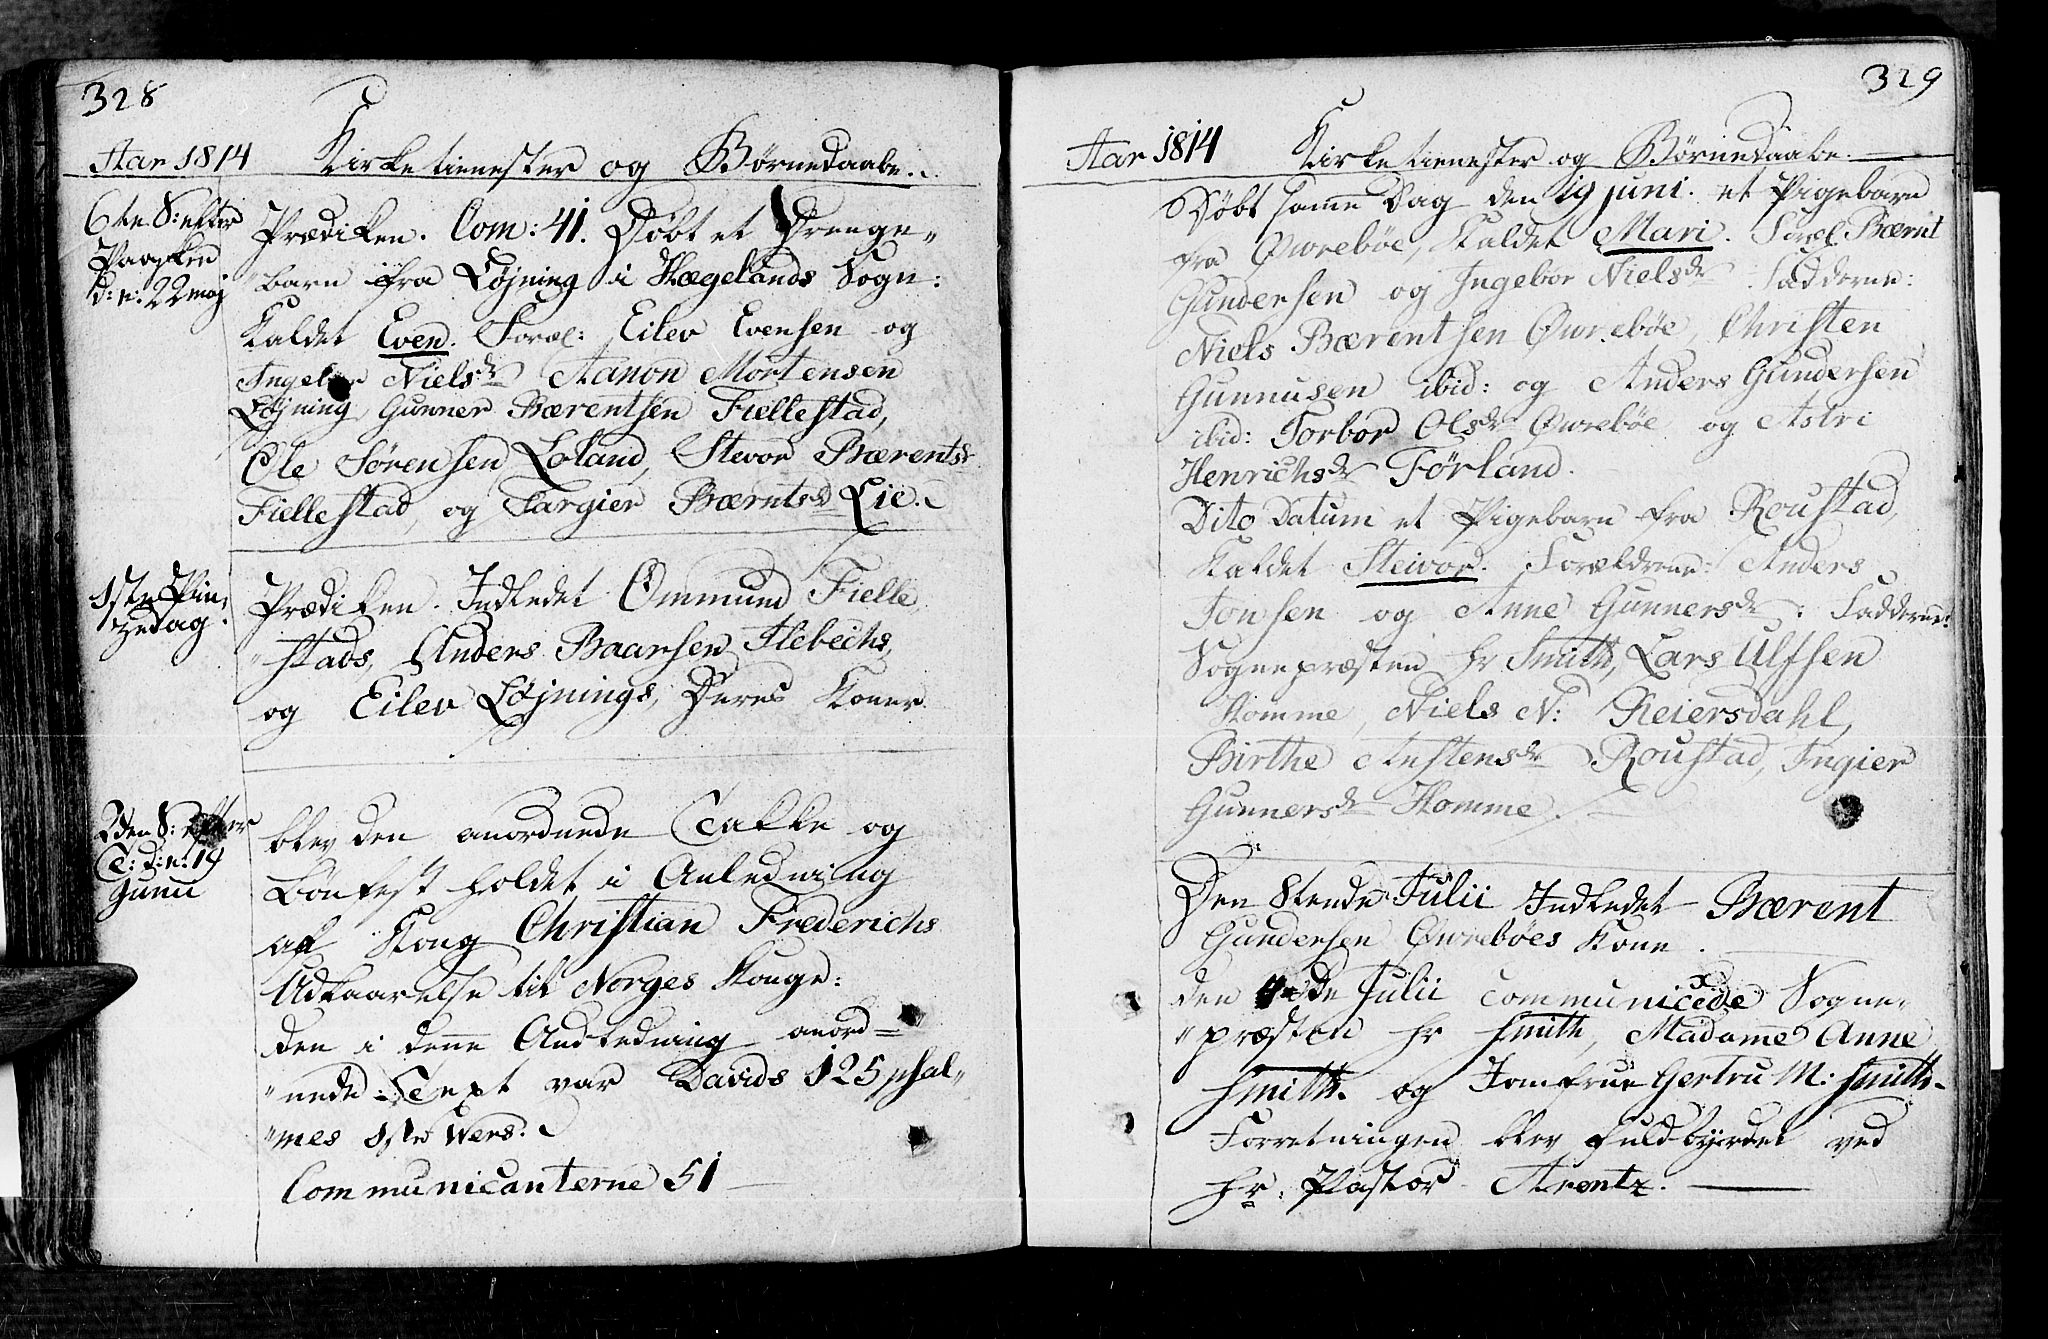 328
Aar 1814 Kirketienester og Børnedaabe.
6te S: efter
Paasken
d: n: 22 maj
Prædiken. Com: 41. Døbt et Drenge-
barn fra Løjning i Hægelands Sogn:
Kaldet Even. Foræl: Eilev Evensen og
Ingebor Nielsdr Aanon Mortensen
Løjning, Gunner Bærentsen Fiellestad,
Ole Sørensen Loland, Stevor Bærentsdr
Fiellestad, og Targier Bærntsd Lie.
1ste Pin-
zedag.
Prædiken. Indledet Ommund Fielle
stads, Anders Baarsen Flebechs,
og Eilev Løjnings, Deres Koner.
2den S: efter
T: d: n: 19
Junii
blev den anordnede Takke og
Bönfest holdet i Anledning
af Kong Christian Frederichs
Udkaarelse til Norges Konge:
den i denne Andledning anord=
nede Text var Davids 125 psal-
mes 1ste Wers.
Communicanterne 51
329
Aar 1814 Kirketienester og Børnedaabe.
Døbt samme Dag den 19 juni. et Pigebarn
fra Øwrebøe, Kaldet Mari. Foræl. Bærnt
Gundersen og Ingebor Nielsdr: Fadderne:
Niels Bærentsen Øwrebøe, Christen
Gunnusen ibid: og Anders Gundersen
ibid: Torbor Olsdr Øwrebøe og Astri
Henrichsdr Førland.
Dito Datum et Pigebarn fra Roustad,
Kaldet Steivor. Forældrene: Anders
Jonsen og Anne Gunnersdr: Fadderne:
Sognepræsten Hr Smith, Lars Ulfsen
Homme, Niels N: Reiersdahl,
Birthe Anstensdr Roustad, Ingier
Gunnersdr Homme.
Den 8tende Julii Indledet Bærent
Gundersen Øwrebøes Kone.
den de Julii communicede Sogne-
præsten Hr Smith, Madame Anne
Smith. og Jomfrue Gertru M: Smith.
Forretningen blev fuldbyrdet ved
Hr: Pastor Arentz.